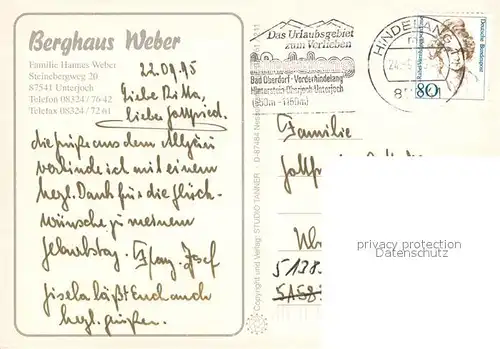 Berghaus Weber
Familie Hannes Weber
Steinebergweg 20
87541 Unterjoch
Telefon 08324/7642
Telefax 08324/7261
22.09.95
Liebe Ritta,
Lieber Gottfried.
die Grüße aus dem Allgäu
verbinde ich mit einem
hezl. Dank für die Glück-
wünsche zu meinem
Geburtstag. Franz-Josef
Gisela läßt Euch auch
hezl. grüßen.
Das Urlaubsgebiet
zum Verlieben
Bad Oberdorf - Vorderhindelang
Hinterstein-Oberjoch-Unterjoch
(850m - 1150m)
HINDELANG
Deutsche Bundespost
80
Copyright und Verlag: STUDIO TANNER · D-87484
Familie
Gottfried
5138
privacy protection
ansichtskartenversand.com